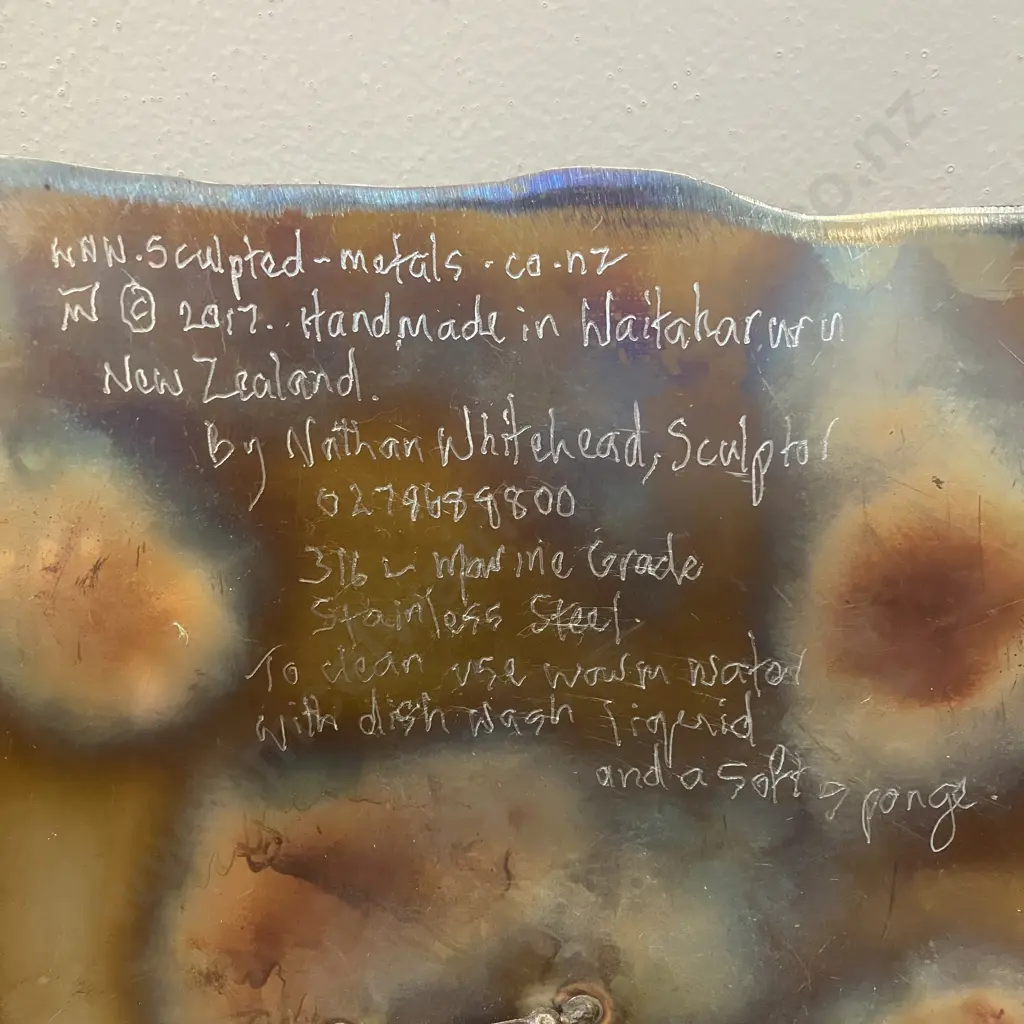 www.sculpted-metals.co.nz
© 2017. Handmade in Waitakaruru
New Zealand.
By Nathan Whitehead, Sculptor
0279689800
316L Marine Grade
Stainless Steel.
To clean use warm water
with dish wash liquid
and a soft sponge.
o.nz